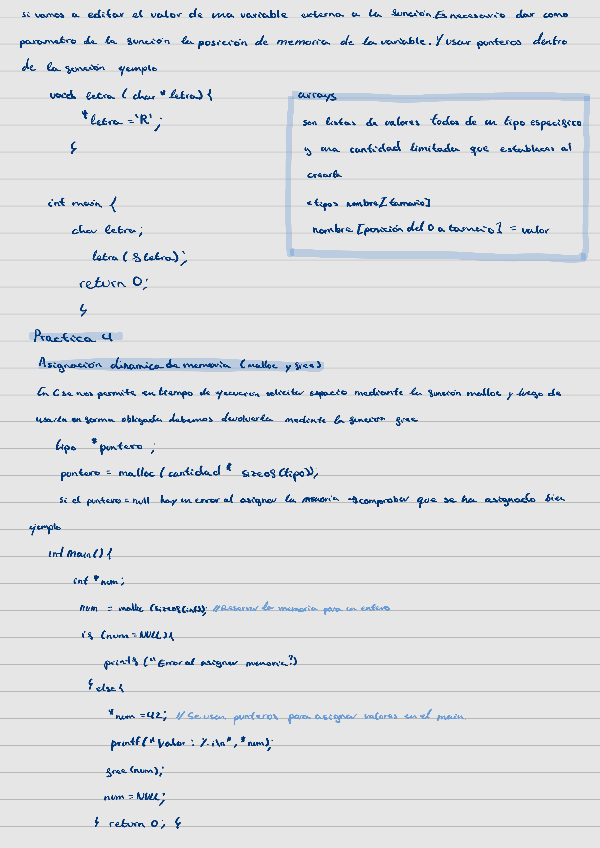 si vamos a editar el valor de una variable externa a la función. Es necesario dar como
parametro de la función la posición de memoria de la variable. Y usar punteros dentro
de la función ejemplo
void letra ( char * letra) {
*letra = 'R';
}
int main {
char letra;
letra ( & letra);
return 0;
}
arrays
son listas de valores todos de un tipo especifico
y una cantidad limitada que establecas al
crearla
<tipo> nombre [tamaño]
nombre [posición del 0 a tamaño] = valor
Practica 4
Asignación dinamica de memoria (malloc y free)
En C se nos permite en tiempo de ejecucion solicitar espacio mediante la función malloc y luego de
usarla en forma obligada debemos devolverla mediante la función free
tipo *puntero ;
puntero = malloc ( cantidad * sizeof (tipo));
Si el puntero = null hay un error al asignar la memoria → comprobar que se ha asignado bien
ejemplo
int main() {
int *num;
num = malloc (sizeof(int)); // Reservar la memoria para un entero
if (num = NULL) {
printf ("Error al asignar memoria")
} else {
*num = 42; // Se usan punteros para asignar valores en el main
printf(" Valor : %i\n", *num);
free (num);
num = NULL;
} return 0; }